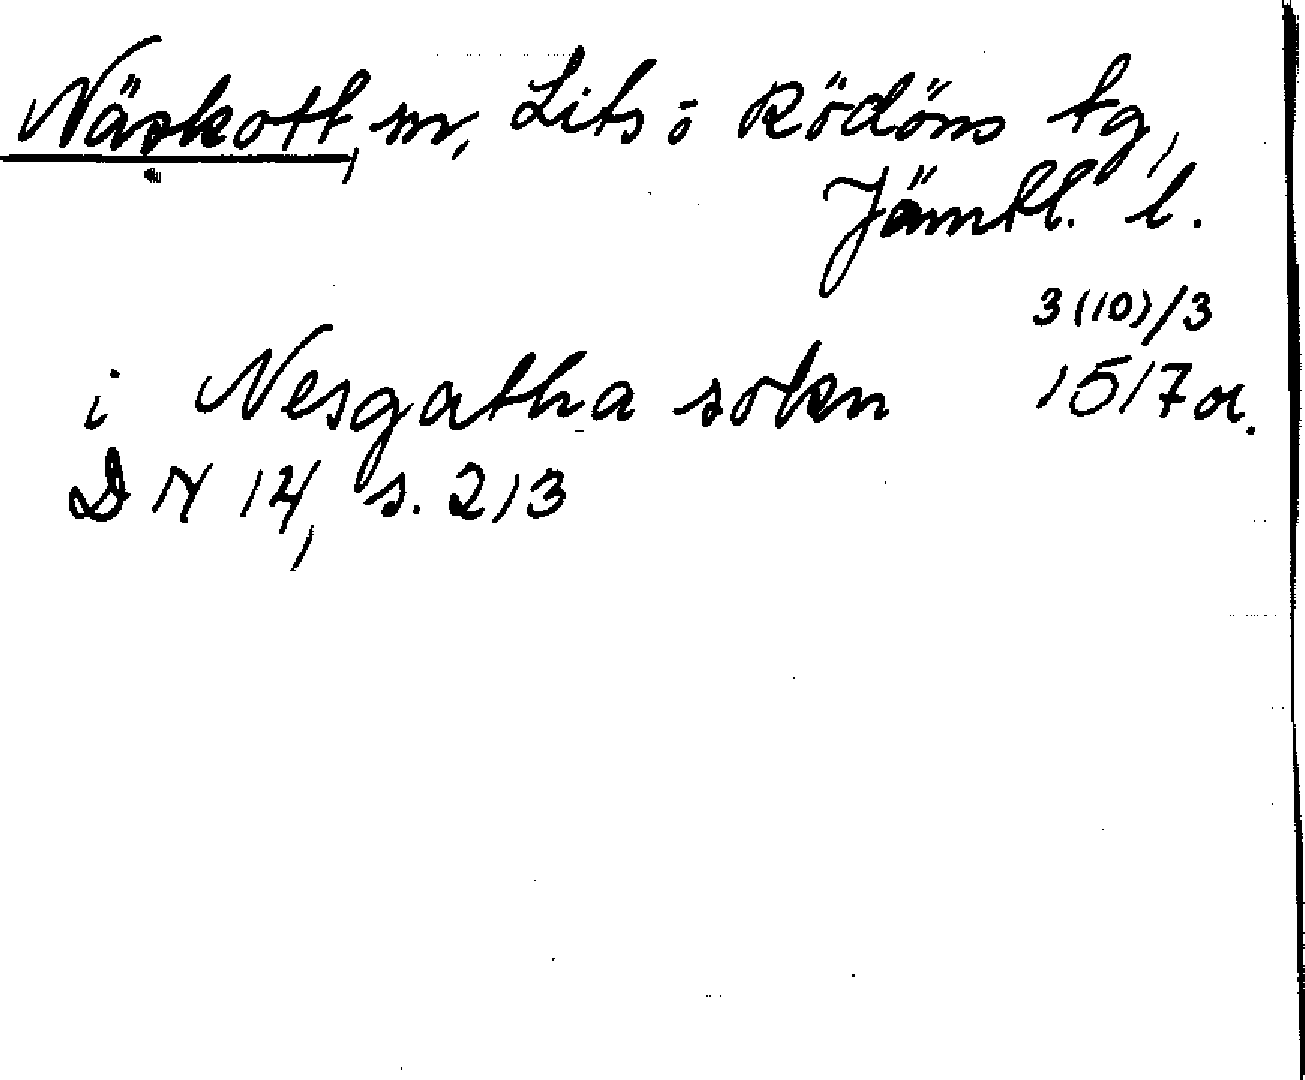 Näskott, sn, Lits o Rödöns tg,
Jämtl. l.
3(10)/3
i Nesgatha sokn 1517 or.
DN 14, s. 213